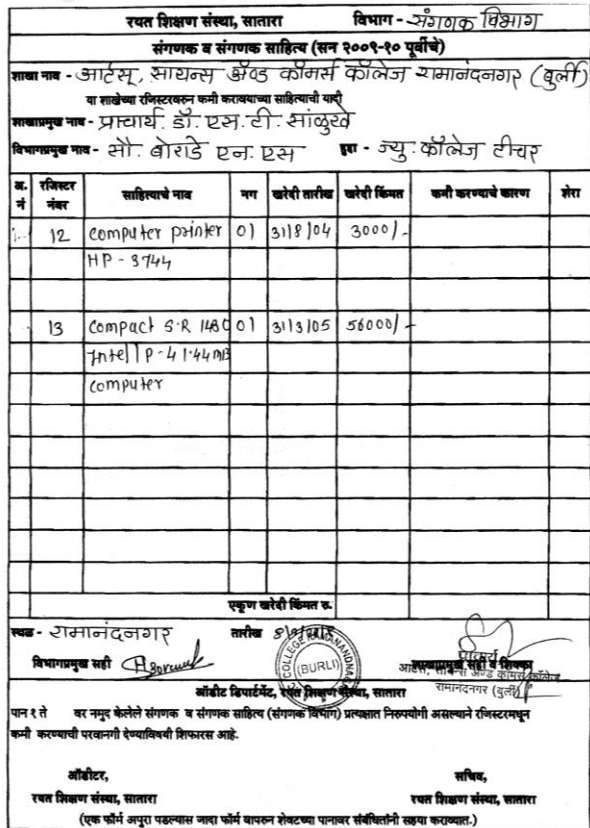 रयत शिक्षण संस्था, सातारा विभाग - संगणक विभाग
संगणक व संगणक साहित्य (सन २००९-१० पूर्वीचे)
शाखा नाव - आर्टस्, सायन्स ॲण्ड कॉमर्स कॉलेज रामानंदनगर (बुर्ली)
या शाखेच्या रजिस्टरवरुन कमी करावयाच्या साहित्याची यादी
शाखाप्रमुख नाव - प्राचार्य. डॉ. एस. टी. सांळुखे
विभागप्रमुख नाव - सौ. बोराडे एन. एस हुद्दा - ज्यु. कॉलेज टीचर
अ. नं रजिस्टर नंबर साहित्याचे नाव नग खरेदी तारीख खरेदी किंमत कमी करण्याचे कारण शेरा
12 computer printer 01 31/8/04 3000/-
HP - 3744
13 compact S.R 1480 01 31/3/05 56000/-
Intel P-4 1.44 MB
computer
एकूण खरेदी किंमत रु.
स्थळ - रामानंदनगर तारीख
विभागप्रमुख सही (BURLI) प्राचार्य
शाखाप्रमुख सही व शिक्का
आर्टस्, सायन्स ॲण्ड कॉमर्स कॉलेज
रामानंदनगर (बुर्ली)
ऑडीट डिपार्टमेंट, रयत शिक्षण संस्था, सातारा
पान १ ते वर नमुद केलेले संगणक व संगणक साहित्य (संगणक विभाग) प्रत्यक्षात निरुपयोगी असल्याने रजिस्टरमधून
कमी करण्याची परवानगी देण्याविषयी शिफारस आहे.
ऑडीटर, सचिव,
रयत शिक्षण संस्था, सातारा रयत शिक्षण संस्था, सातारा
(एक फॉर्म अपुरा पडल्यास जादा फॉर्म वापरुन शेवटच्या पानावर संबंधितांनी सहया कराव्यात.)